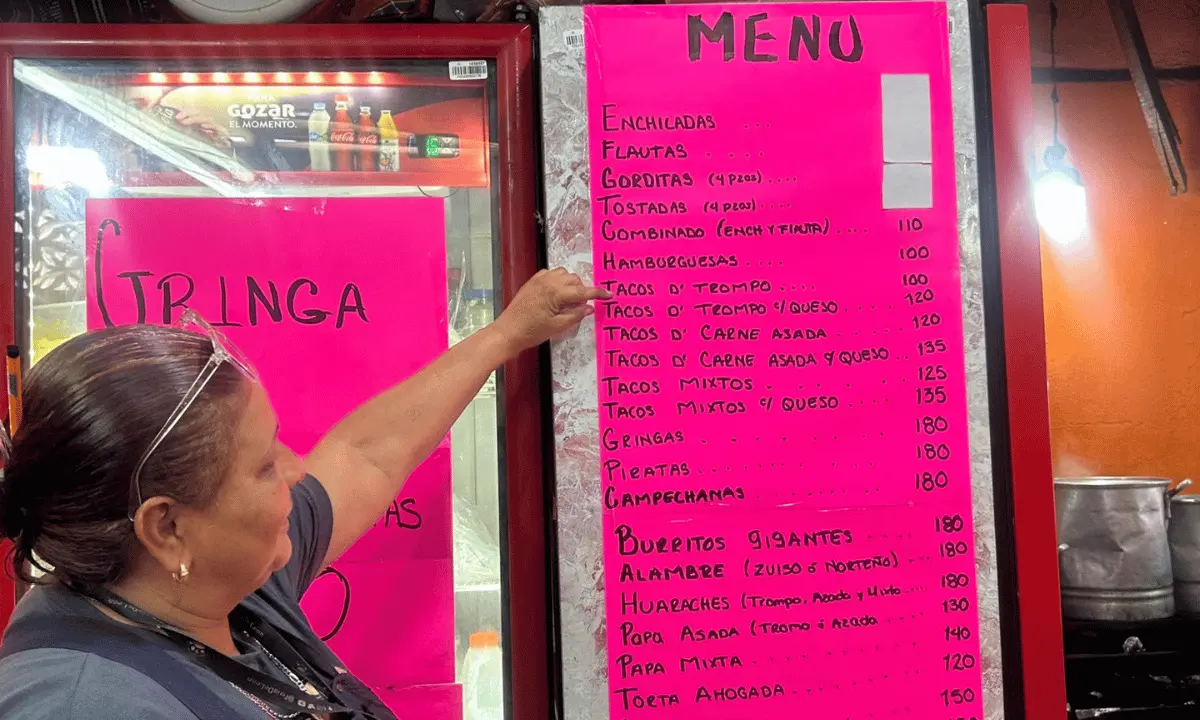 GOZAR
EL MOMENTO.
Coca-Cola
GRINGA
AS
MENU
ENCHILADAS ...
FLAUTAS ....
GORDITAS (4 PZAS) ....
TOSTADAS (4 PZAS) ....
COMBINADO (ENCH Y FLAUTA) .... 110
HAMBURGUESAS .... 100
TACOS D' TROMPO .... 100
TACOS D' TROMPO C/ QUESO .... 120
TACOS D' CARNE ASADA ..... 120
TACOS D' CARNE ASADA Y QUESO .. 135
TACOS MIXTOS ..... 125
TACOS MIXTOS C/ QUESO .... 135
GRINGAS ....... 180
PIRATAS ....... 180
CAMPECHANAS ....... 180
BURRITOS GIGANTES .... 180
ALAMBRE (ZUISO Ó NORTEÑO) ... 180
HUARACHES (Trompo, Asada y Mixto ... 180
PAPA ASADA (TROMO Ó AZADA .... 130
PAPA MIXTA ....... 140
TORTA AHOGADA ....... 120
150